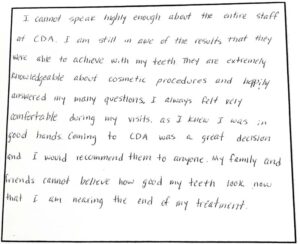 I cannot speak highly enough about the entire staff
at CDA. I am still in awe of the results that they
were able to achieve with my teeth They are extremely
knowledgeable about cosmetic procedures and happily
answered my many questions, I always felt very
comfortable during my visits, as I knew I was in
good hands Coming to CDA was a great decision
and I would recommend them to anyone. My family and
friends cannot believe how good my teeth look now
that I am nearing the end of my treatment.